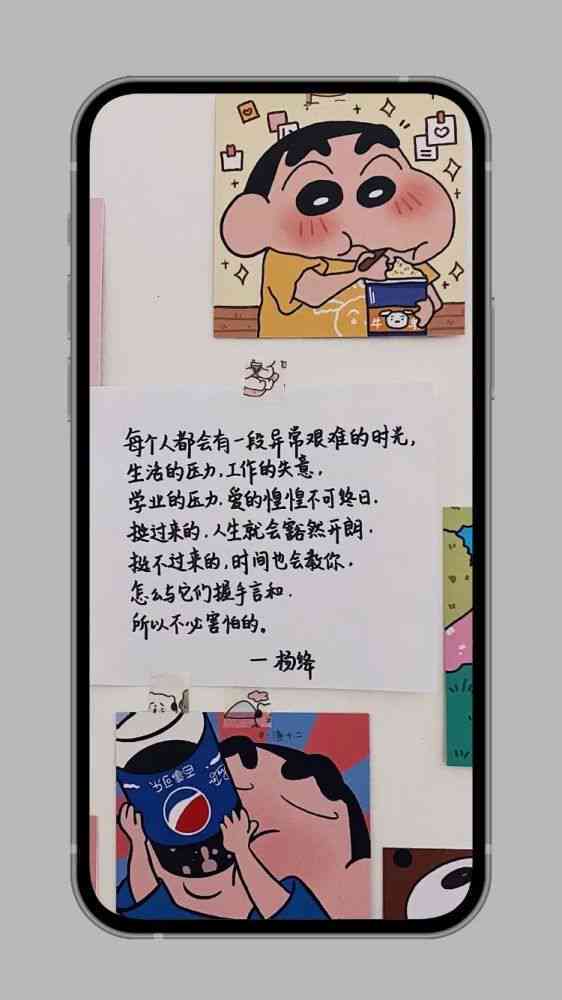 每个人都会有一段异常艰难的时光,
生活的压力,工作的失意,
学业的压力.爱的惶惶不可终日.
挺过来的,人生就会豁然开朗.
挺不过来的,时间也会教你,
怎么与它们握手言和.
所以不必害怕的。
一 杨绛
百事可乐